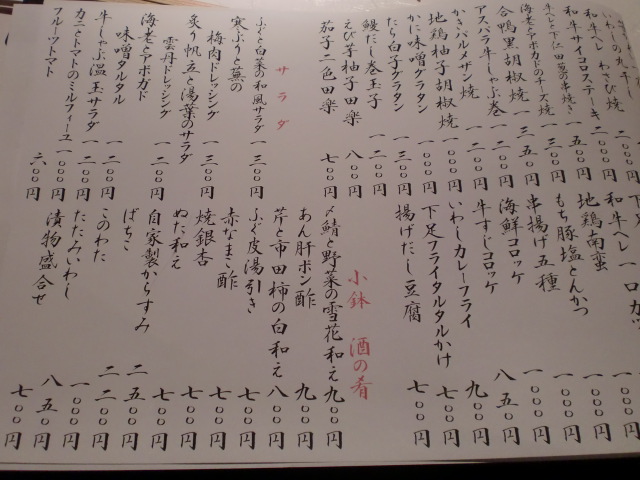 いわしの丸干し
和牛ヘレ わさび焼 二〇〇〇円
和牛サイコロステーキ 二〇〇〇円
牛へれと下仁田葱の串焼き 一五〇〇円
海老とアボカドのチーズ焼 一三〇〇円
合鴨黒胡椒焼 一五〇〇円
アスパラ牛しゃぶ巻 一二〇〇円
かきパルメザン焼 一二〇〇円
地鶏柚子胡椒焼 一〇〇〇円
かに味噌グラタン 一〇〇〇円
たら白子グラタン 一三〇〇円
鰻だし巻玉子 一二〇〇円
えび芋柚子田楽 八〇〇円
茄子二色田楽 七〇〇円
サラダ
ふぐと白菜の和風サラダ 一三〇〇円
寒ぶりと蕪の
梅肉ドレッシング 一三〇〇円
炙り帆立と湯葉のサラダ
雲丹ドレッシング 一二〇〇円
海老とアボカド
味噌タルタル 一二〇〇円
牛しゃぶ温玉サラダ 一二〇〇円
カニとトマトのミルフィーユ 一〇〇〇円
フルーツトマト 六〇〇円
和牛ヘレ一口カツ
地鶏南蛮
もち豚塩とんかつ 一〇〇〇円
串揚げ五種 一〇〇〇円
海鮮コロッケ 一〇〇〇円
牛すじコロッケ 八五〇円
いわしカレーフライ 九〇〇円
下足フライタルタルかけ 七〇〇円
揚げだし豆腐 七〇〇円
小鉢 酒の肴
〆鯖と野菜の雪花和え 九〇〇円
あん肝ポン酢 九〇〇円
芹と市田柿の白和え 八〇〇円
ふぐ皮湯引き 九〇〇円
赤なまこ酢 七〇〇円
焼銀杏 七〇〇円
ぬた和え 七〇〇円
自家製からすみ 七〇〇円
ばちこ 二五〇〇円
このわた 二二〇〇円
たたみいわし 一〇〇〇円
漬物盛合せ 八五〇円
七〇〇円